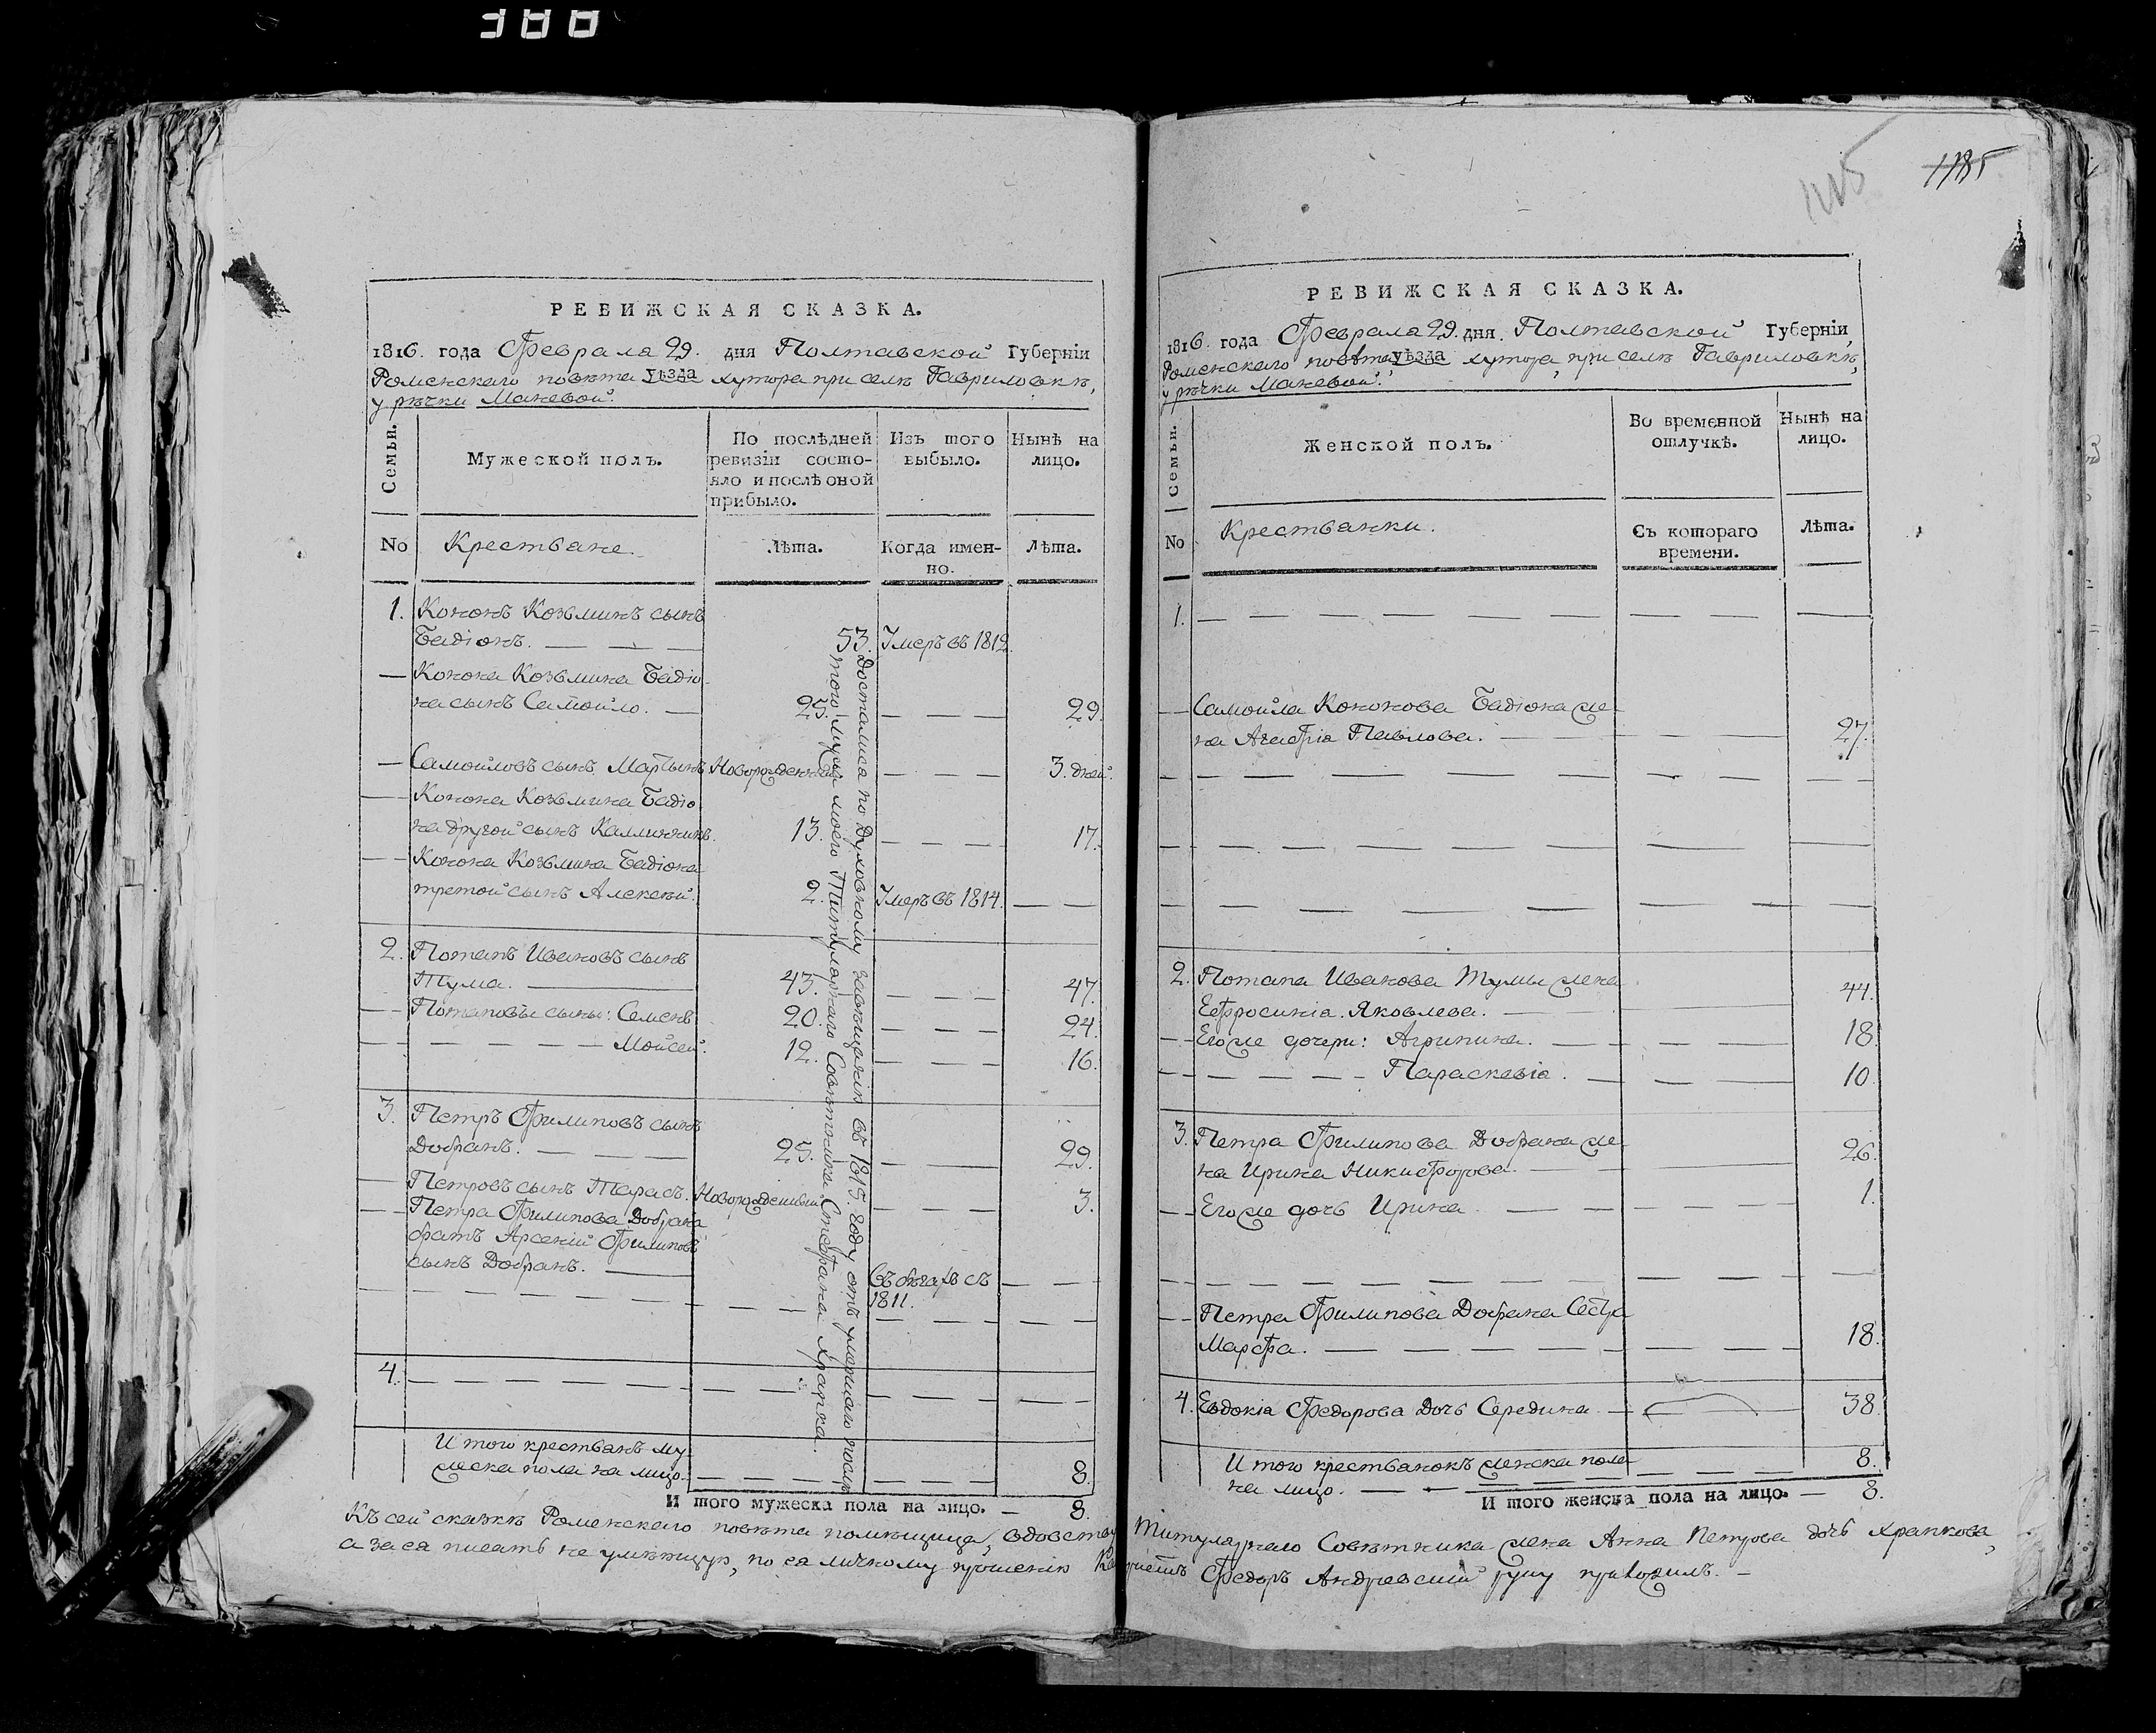 388
РЕВИЖСКАЯ СКАЗКА.
1816. года Февраля 29. дня Полтавской Губерніи
Роменскаго повѣта уѣзда хутора при селѣ Гавриловкѣ,
у рѣчки
Семьи.
Мужеской полъ.
По послѣдней ревизіи состояло и послѣ оной прибыло.
Изъ того выбыло.
Нынѣ на лицо.
No
Крестьяне.
Лѣта.
Когда именно.
Лѣта.
1. Кононъ Козьминъ сынъ
Бадіонъ. — — — 53. Умеръ въ 1812.
— Конона Козьмина Бадіо-
на сынъ Самойло. — 25. — — — 29.
— Самойловъ сынъ Мартынъ Новорожденный — — — 3. дней.
— Конона Козьмина Бадіо-
на другой сынъ Каллиникъ. 13. — — — 17.
— Конона Козьмина Бадіона
третой сынъ Алексѣй. 2. Умеръ въ 1814. — —
2. Потапъ Ивановъ сынъ
Тума. — 43. — — — 47.
— Потаповы сыны: Семенъ 20. — — — 24.
— — — — Мойсей. 12. — — — 16.
3. Петръ Филиповъ сынъ
Добранъ. — — — 25. — — 29.
— Петровъ сынъ Тарасъ. Новорожденный — — — 3.
— Петра Филипова Добрана
братъ Арсеній Филиповъ
сынъ Добранъ. — Въ бѣгахъ съ — —
1811.
4. — — — —
И того крестьянъ му-
жеска пола на лицо. — — — 8.
И того мужеска пола на лицо. — 8.
Досталися по Духовному завѣщанію въ 1815. году отъ умершаго
мужа моего Титулярнаго Совѣтника Стефана Храпка.
1185
РЕВИЖСКАЯ СКАЗКА.
1816. года Февраля 29. дня. Полтавской Губерніи,
Роменскаго повѣта, уѣзда хутора, при селѣ Гавриловкѣ,
у рѣчки
Семьи.
Женской полъ.
Во временной отлучкѣ.
Нынѣ на лицо.
No
Крестьянки.
Съ котораго времени.
Лѣта.
1. — — — —
— Самойла Кононова Бадіона же-
на Агафія Павлова. — — — 27.
2. Потапа Иванова Тумы жена
Ефросинія Яковлева. — — 44.
— Его же дочери: Агрипина. — — 18.
— — — — Параскевія. — — 10.
3. Петра Филипова Добрана же-
на Ирина Никифорова. — — 26.
— Его же дочь Ирина — — 1.
— Петра Филипова Добрана Сестра
Марфа. — — — 18.
4. Евдокія Федорова Дочь Середина. — 38.
И того крестьянокъ женска пола
на лицо. — — — 8.
И того женска пола на лицо. — 8.
Къ сей сказкѣ Роменскаго повѣта помѣщица, Титулярнаго Совѣтника жена Анна Петрова дочь Храпкова,
а за ея писать не умѣющую, по ея личному прошенію Федоръ Андріевскій руку приложилъ. —